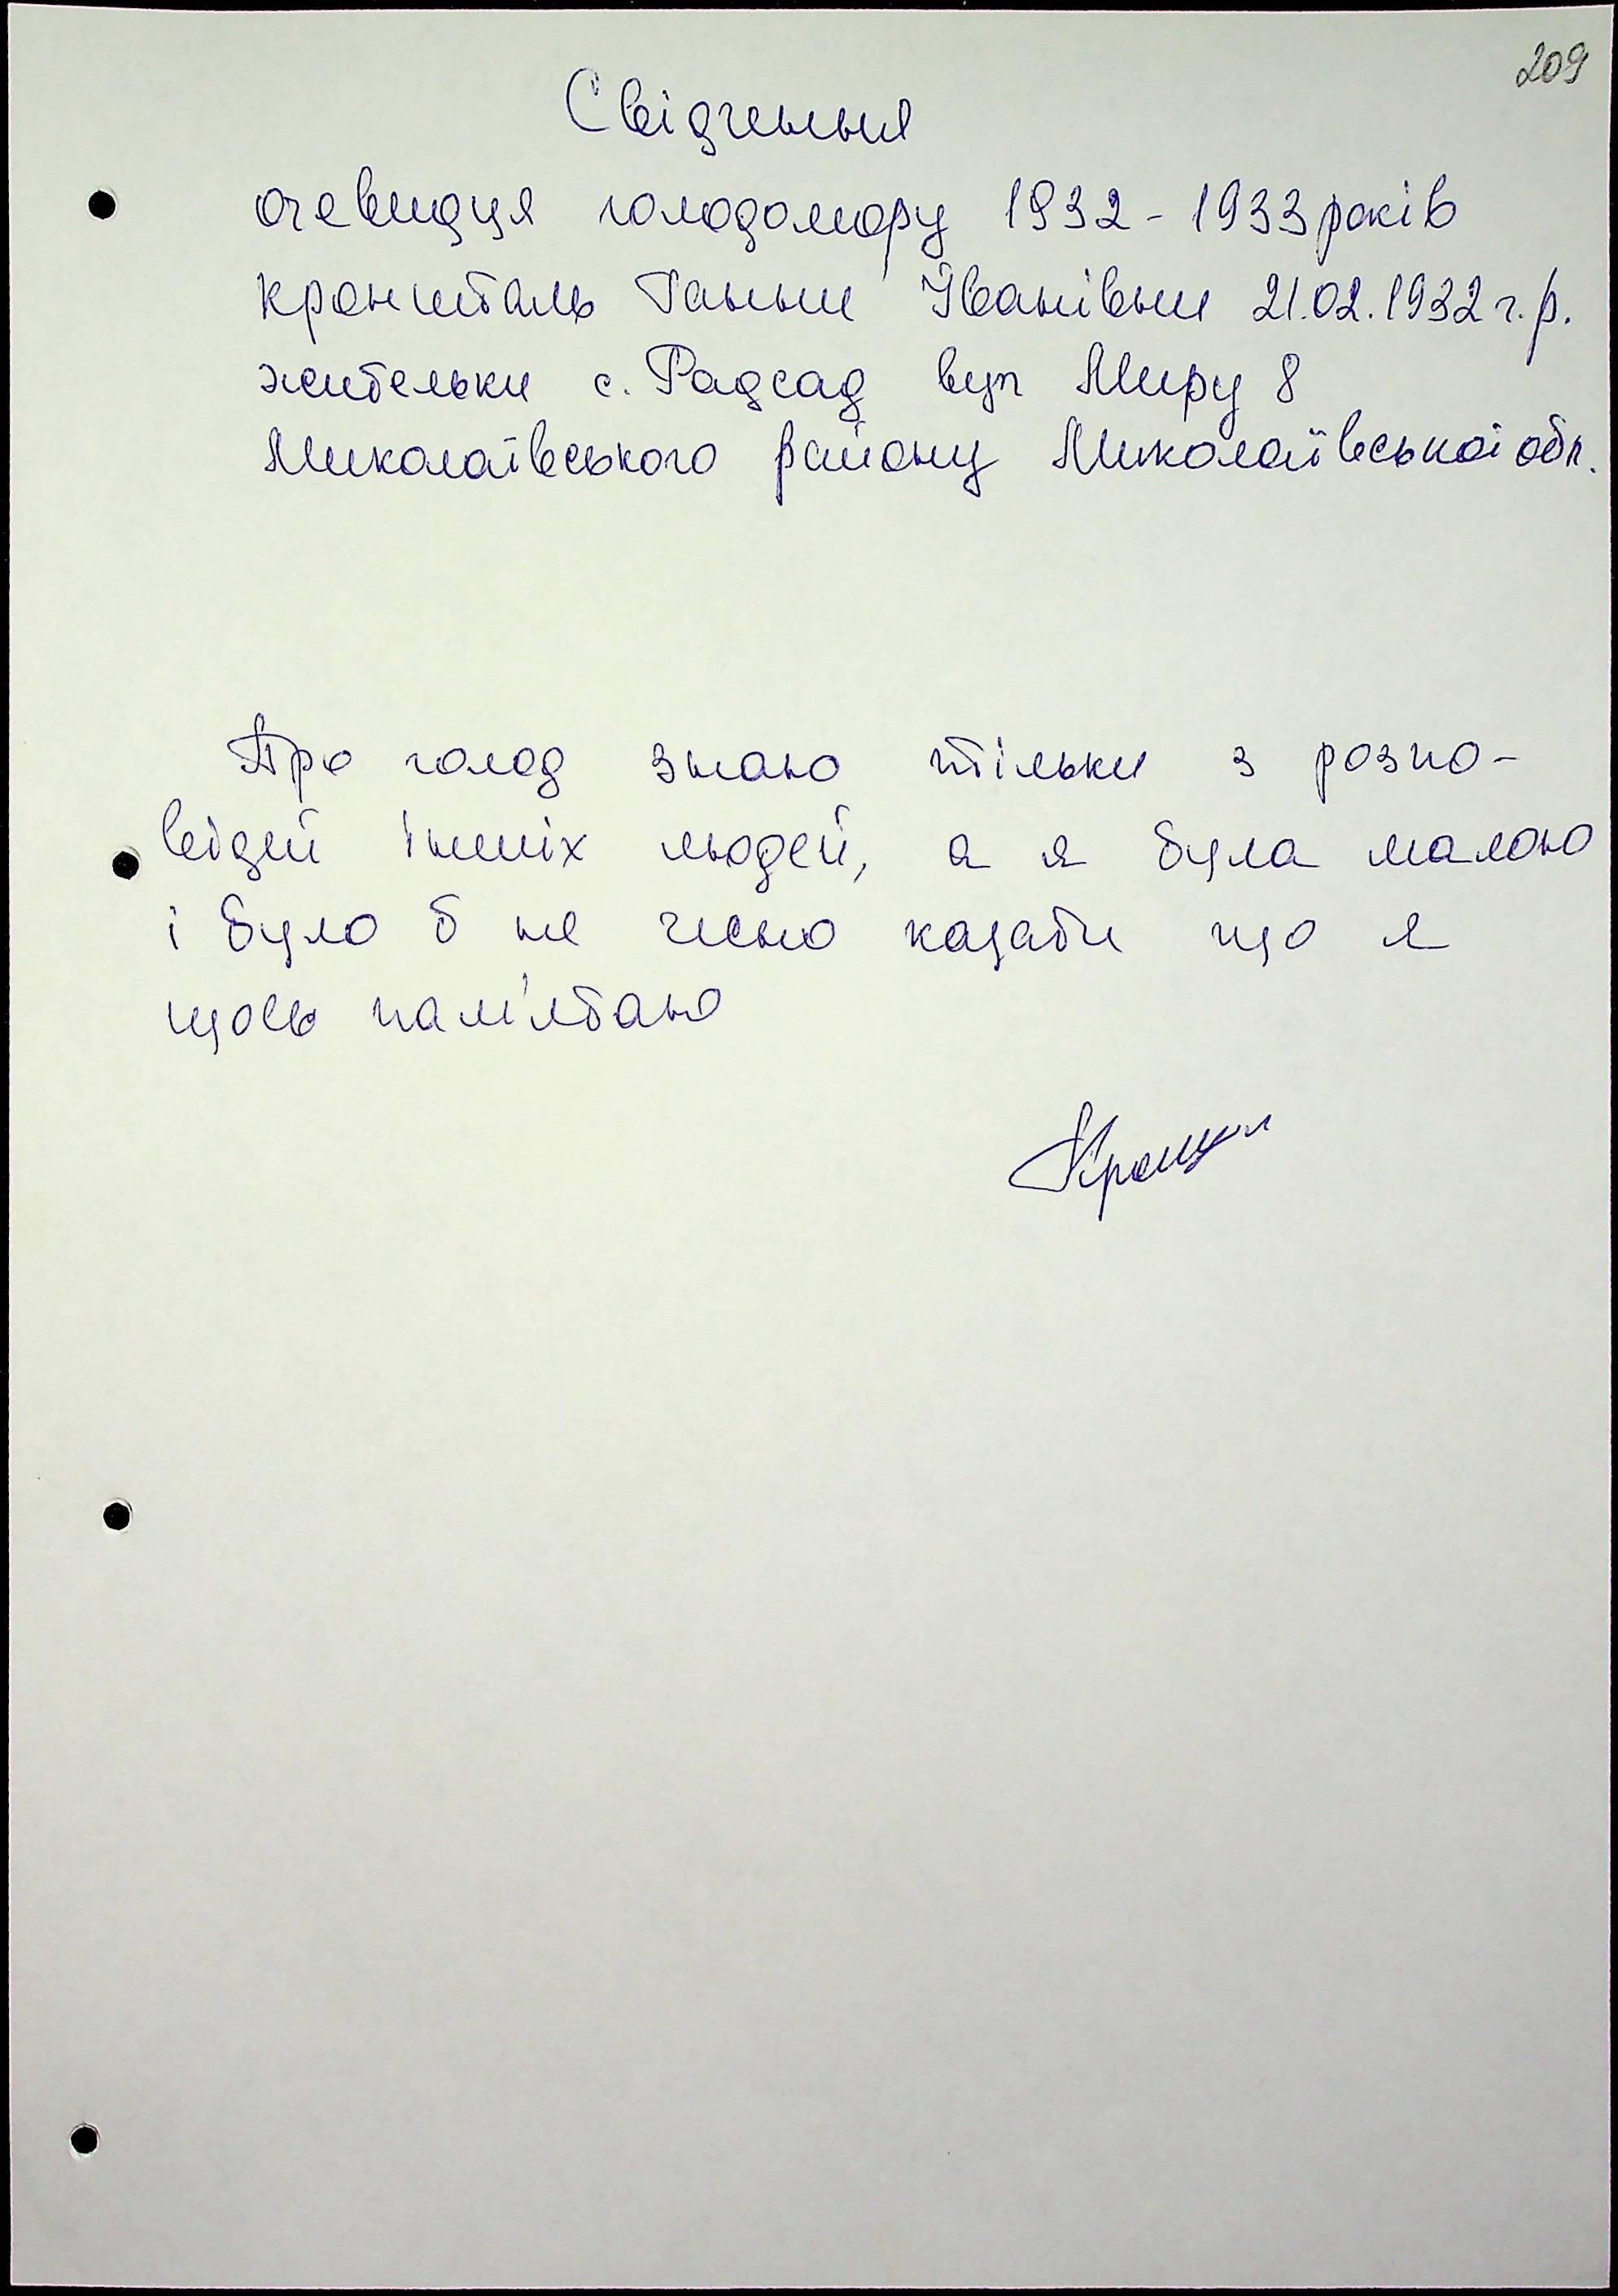 209
Свідчення
очевидця голодомору 1932-1933 років
Кроништаль Ганни Іванівни 21.02.1932 г.р.
жительки с. Радсад вул Миру 8
Миколаївського району Миколаївської обл.
Про голод знаю тільки з розпо-
відей інших людей, а я була малою
і було б не чесно казати що я
щось пам'ятаю